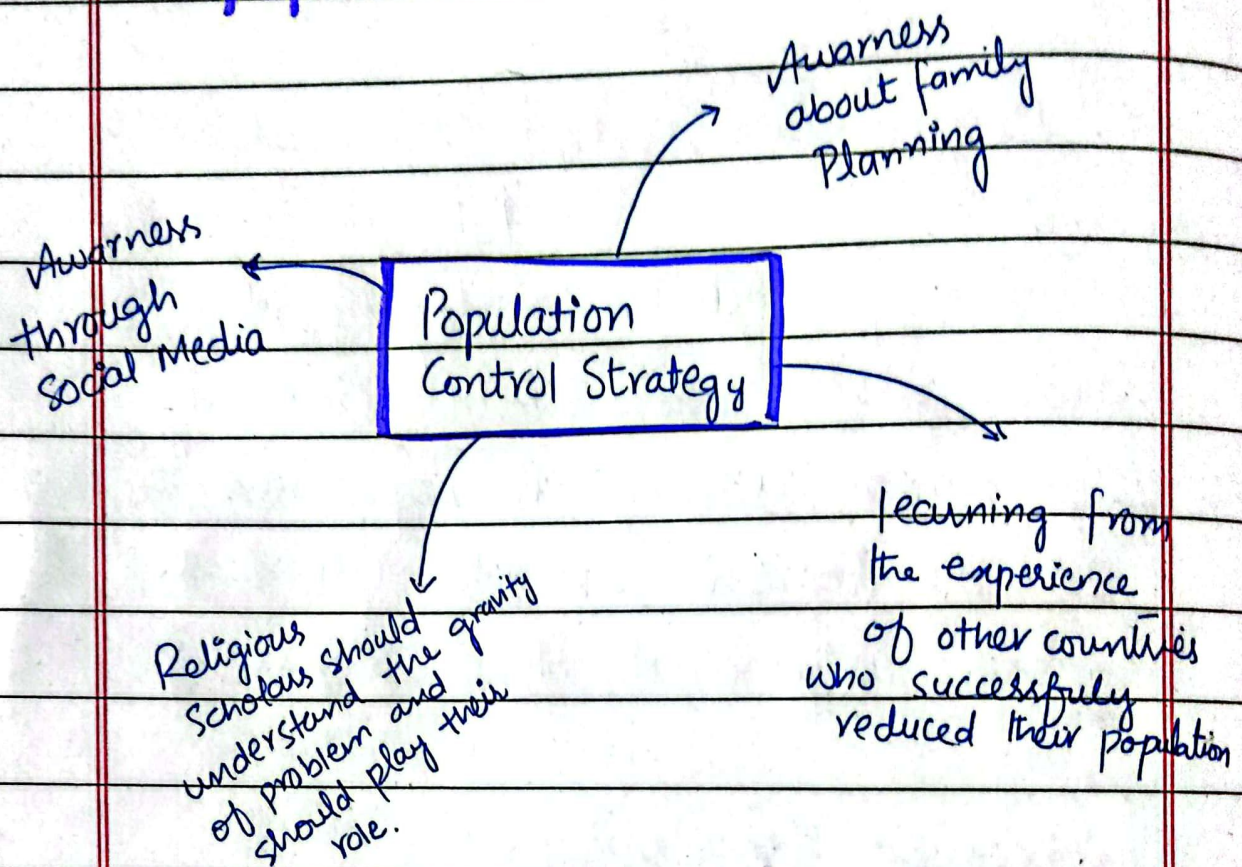 Awarness
about family
Planning
Awarness
through
Social Media
Population
Control Strategy
learning from
the experience
of other countries
who successfuly
reduced their population
Religious
scholars should
understand the gravity
of problem and
should play their
role.